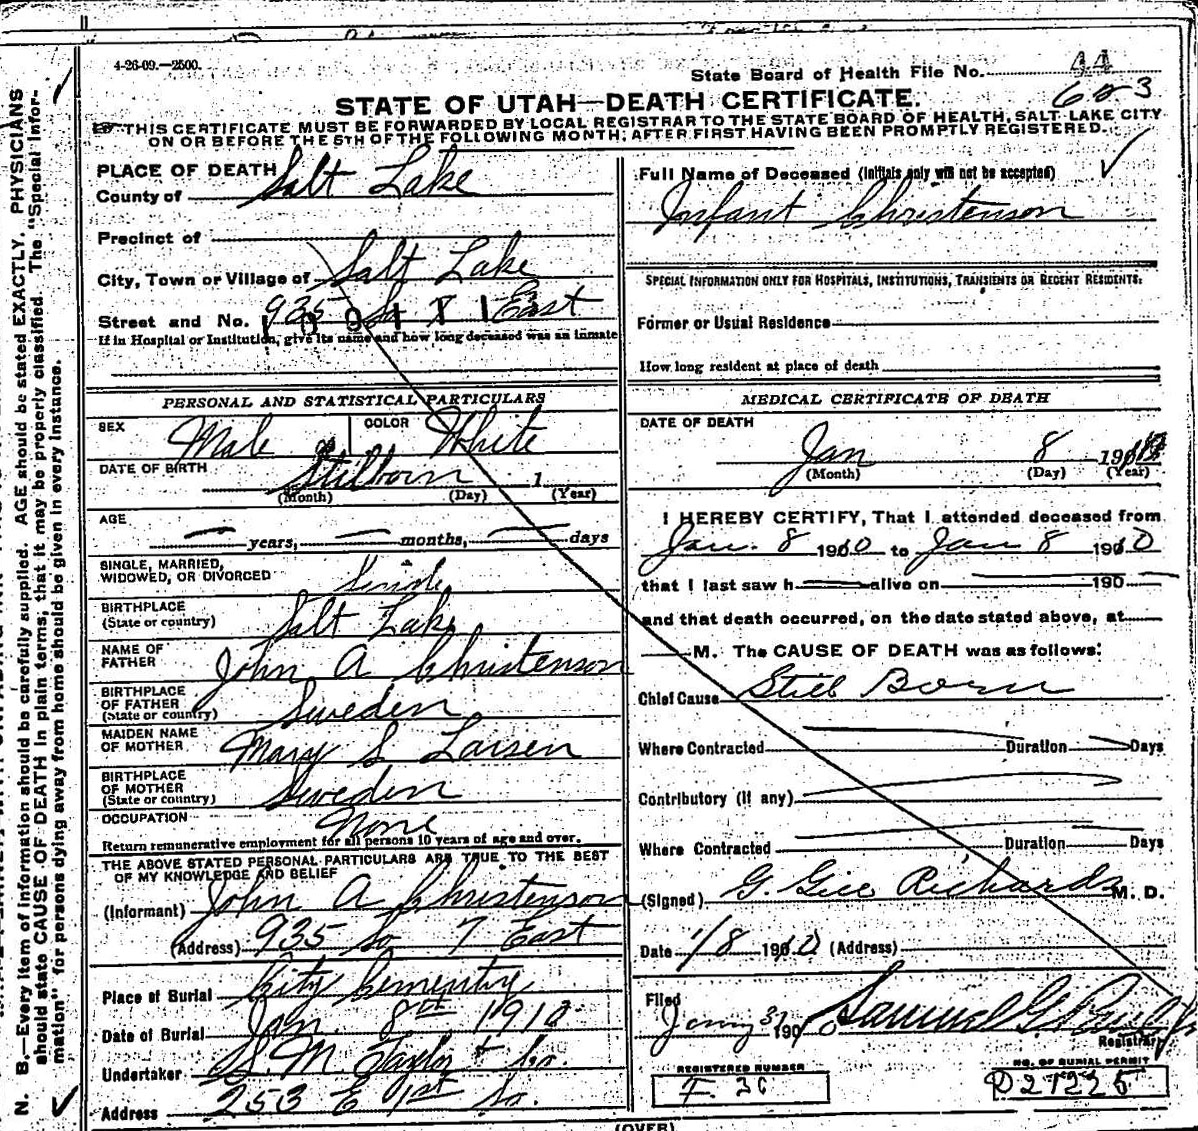 4-26-09.—2500.
State Board of Health File No. 44
603
STATE OF UTAH—DEATH CERTIFICATE.
THIS CERTIFICATE MUST BE FORWARDED BY LOCAL REGISTRAR TO THE STATE BOARD OF HEALTH, SALT LAKE CITY
ON OR BEFORE THE 5TH OF THE FOLLOWING MONTH, AFTER FIRST HAVING BEEN PROMPTLY REGISTERED.
PLACE OF DEATH
County of Salt Lake
Precinct of
City, Town or Village of Salt Lake
Street and No. 935 So 7 East
If in Hospital or Institution, give its name and how long deceased was an inmate
PERSONAL AND STATISTICAL PARTICULARS
SEX Male COLOR White
DATE OF BIRTH Stilborn 1
(Month) (Day) (Year)
AGE
years, months, days
SINGLE, MARRIED,
WIDOWED, OR DIVORCED Single
BIRTHPLACE
(State or country) Salt Lake
NAME OF
FATHER John A Christenson
BIRTHPLACE
OF FATHER
(State or country) Sweden
MAIDEN NAME
OF MOTHER Mary S Larsen
BIRTHPLACE
OF MOTHER
(State or country) Sweden
OCCUPATION None
Return remunerative employment for all persons 10 years of age and over.
THE ABOVE STATED PERSONAL PARTICULARS ARE TRUE TO THE BEST
OF MY KNOWLEDGE AND BELIEF
(Informant) John A Christenson
(Address) 935 So 7 East
Place of Burial City Cementry
Date of Burial Jan. 8th 1910
Undertaker S. M. Taylor + Co.
Address 253 E 1st So.
Full Name of Deceased (Initials only will not be accepted)
Infant Christenson
SPECIAL INFORMATION ONLY FOR HOSPITALS, INSTITUTIONS, TRANSIENTS OR RECENT RESIDENTS:
Former or Usual Residence
How long resident at place of death
MEDICAL CERTIFICATE OF DEATH
DATE OF DEATH
Jan 8 1910
(Month) (Day) (Year)
I HEREBY CERTIFY, That I attended deceased from
Jan. 8 1910 to Jan 8 1910
that I last saw h alive on 190
and that death occurred, on the date stated above, at
M. The CAUSE OF DEATH was as follows:
Chief Cause Still Born
Where Contracted Duration Days
Contributory (if any)
Where Contracted Duration Days
(Signed) G. Gill Richards M. D.
Date 1/8 1910 (Address)
Filed
190 Samuel G.
Registrar
REGISTERED NUMBER
NO. OF BURIAL PERMIT
D 21225
(OVER)
N. B.—Every item of information should be carefully supplied. AGE should be stated EXACTLY. PHYSICIANS
should state CAUSE OF DEATH in plain terms, that it may be properly classified. The "Special Infor-
mation" for persons dying away from home should be given in every instance.